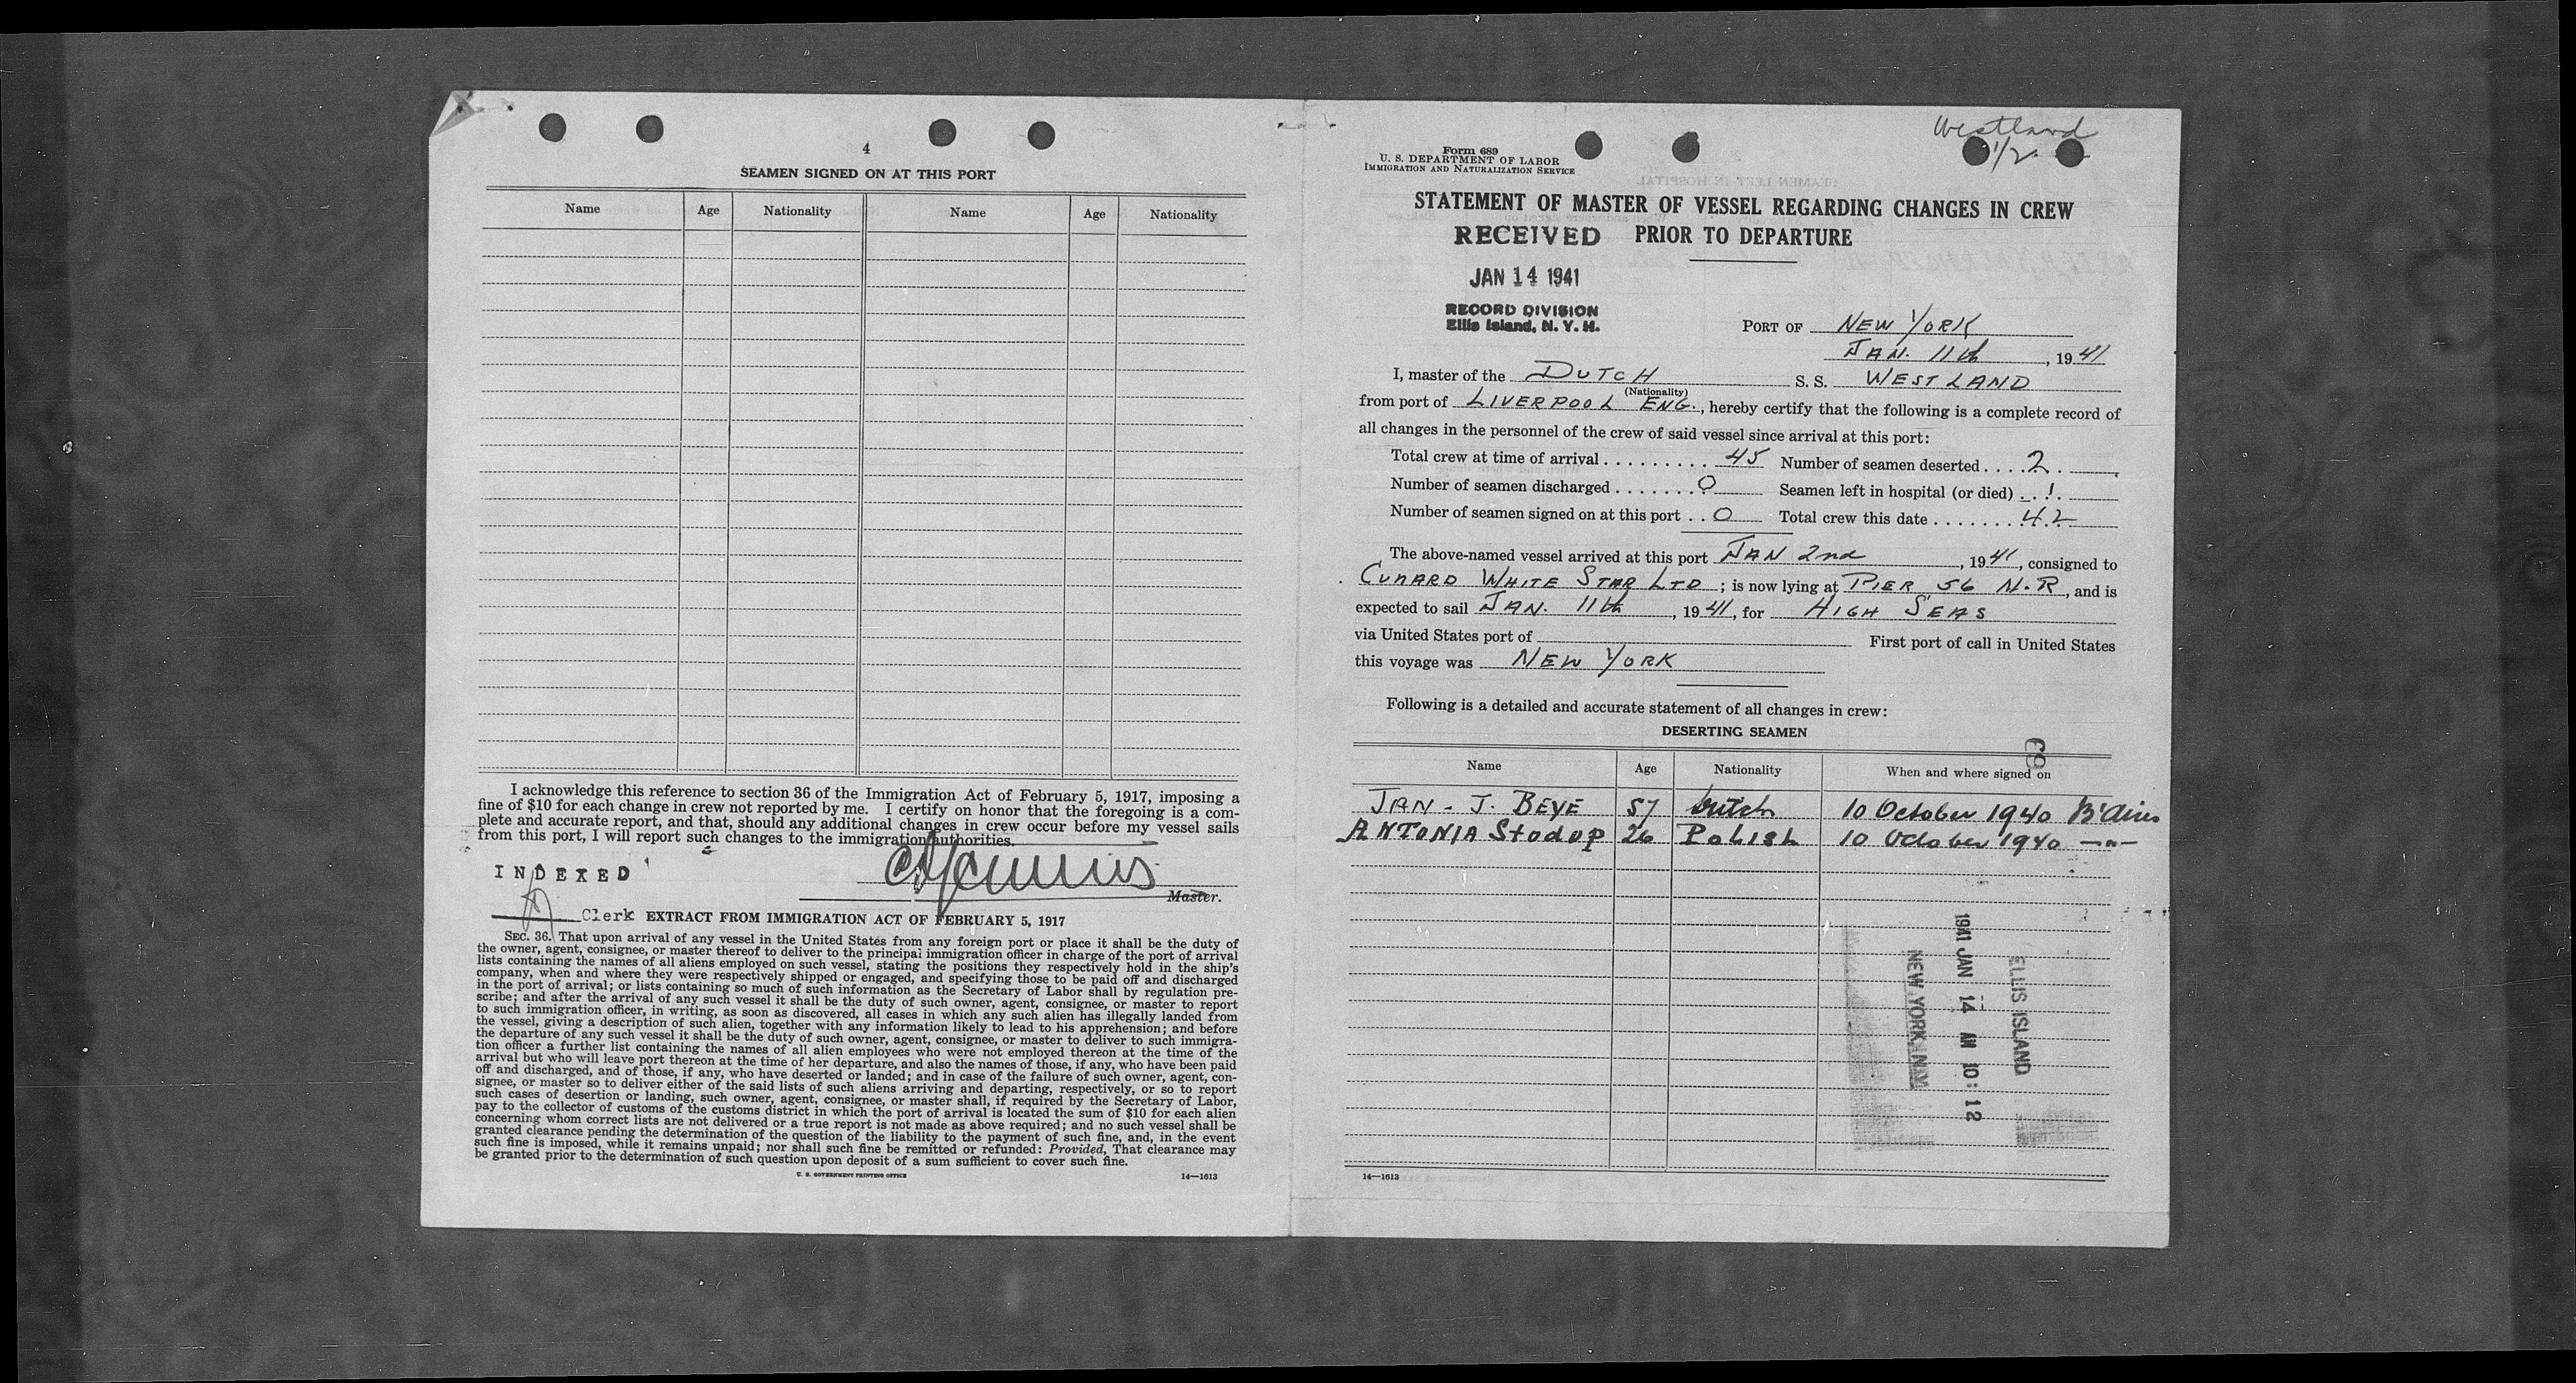 4
SEAMEN SIGNED ON AT THIS PORT
Name Age Nationality Name Age Nationality
I acknowledge this reference to section 36 of the Immigration Act of February 5, 1917, imposing a
fine of $10 for each change in crew not reported by me. I certify on honor that the foregoing is a com-
plete and accurate report, and that, should any additional changes in crew occur before my vessel sails
from this port, I will report such changes to the immigration authorities.
INDEXED
Master.
Clerk EXTRACT FROM IMMIGRATION ACT OF FEBRUARY 5, 1917
SEC. 36. That upon arrival of any vessel in the United States from any foreign port or place it shall be the duty of
the owner, agent, consignee, or master thereof to deliver to the principal immigration officer in charge of the port of arrival
lists containing the names of all aliens employed on such vessel, stating the positions they respectively hold in the ship's
company, when and where they were respectively shipped or engaged, and specifying those to be paid off and discharged
in the port of arrival; or lists containing so much of such information as the Secretary of Labor shall by regulation pre-
scribe; and after the arrival of any such vessel it shall be the duty of such owner, agent, consignee, or master to report
to such immigration officer, in writing, as soon as discovered, all cases in which any such alien has illegally landed from
the vessel, giving a description of such alien, together with any information likely to lead to his apprehension; and before
the departure of any such vessel it shall be the duty of such owner, agent, consignee, or master to deliver to such immigra-
tion officer a further list containing the names of all alien employees who were not employed thereon at the time of the
arrival but who will leave port thereon at the time of her departure, and also the names of those, if any, who have been paid
off and discharged, and of those, if any, who have deserted or landed; and in case of the failure of such owner, agent, con-
signee, or master so to deliver either of the said lists of such aliens arriving and departing, respectively, or so to report
such cases of desertion or landing, such owner, agent, consignee, or master shall, if required by the Secretary of Labor,
pay to the collector of customs of the customs district in which the port of arrival is located the sum of $10 for each alien
concerning whom correct lists are not delivered or a true report is not made as above required; and no such vessel shall be
granted clearance pending the determination of the question of the liability to the payment of such fine, and, in the event
such fine is imposed, while it remains unpaid; nor shall such fine be remitted or refunded: Provided, That clearance may
be granted prior to the determination of such question upon deposit of a sum sufficient to cover such fine.
U. S. GOVERNMENT PRINTING OFFICE 14—1613
Westland
1/2
Form 689
U. S. DEPARTMENT OF LABOR
IMMIGRATION AND NATURALIZATION SERVICE
STATEMENT OF MASTER OF VESSEL REGARDING CHANGES IN CREW
RECEIVED PRIOR TO DEPARTURE
JAN 14 1941
RECORD DIVISION
Ellis Island, N. Y. H.
PORT OF NEW YORK
JAN. 11th, 1941
I, master of the DUTCH S. S. WESTLAND
(Nationality)
from port of LIVERPOOL ENG., hereby certify that the following is a complete record of
all changes in the personnel of the crew of said vessel since arrival at this port:
Total crew at time of arrival 45 Number of seamen deserted 2
Number of seamen discharged 0 Seamen left in hospital (or died) 1
Number of seamen signed on at this port 0 Total crew this date 42
The above-named vessel arrived at this port JAN 2nd, 1941, consigned to
CUNARD WHITE STAR LTD; is now lying at PIER 56 N.R, and is
expected to sail JAN. 11th, 1941, for HIGH SEAS
via United States port of First port of call in United States
this voyage was NEW YORK
Following is a detailed and accurate statement of all changes in crew:
DESERTING SEAMEN
69
Name Age Nationality When and where signed on
JAN - J. BEYE 57 Dutch 10 October 1940 B'Aires
ANTONIA Stodup 26 Polish 10 October 1940 —"—
ELLIS ISLAND
1941 JAN 14 AM 10:12
NEW YORK, N.Y.
14—1613